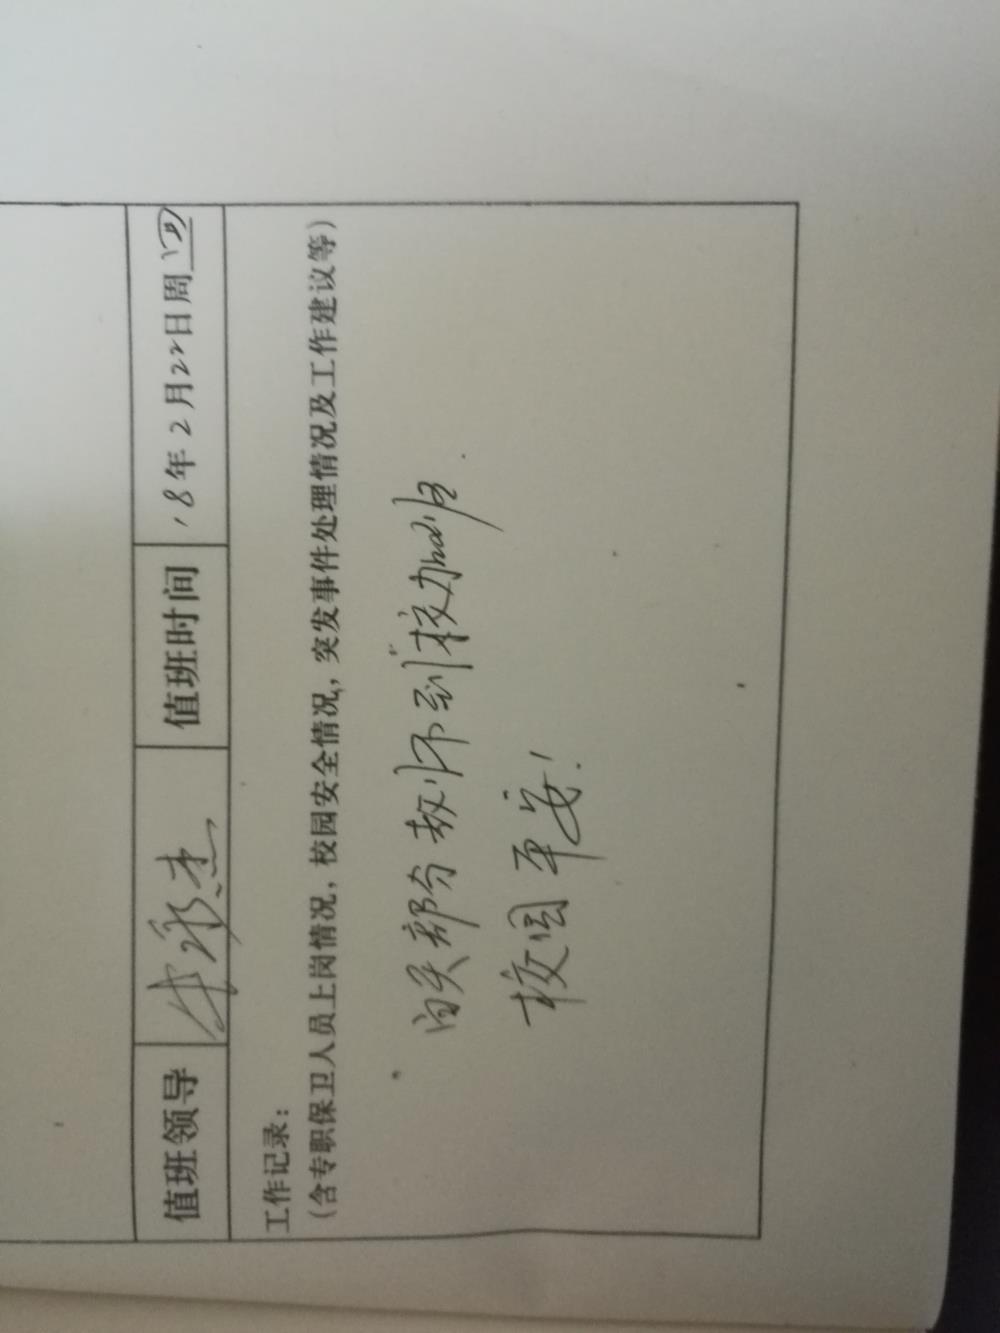 值班领导 牛永杰 值班时间 18年2月22日周四
工作记录：
（含专职保卫人员上岗情况，校园安全情况，突发事件处理情况及工作建议等）
白天部分教师到校加班.
校园平安！